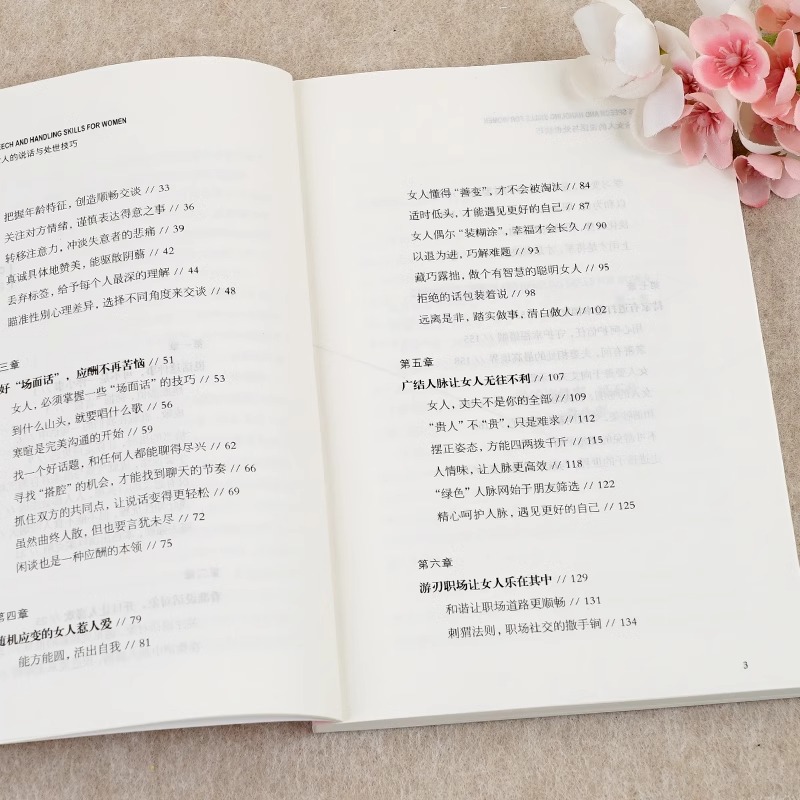 EECH AND HANDLING SKILLS FOR WOMEN
人的说话与处世技巧
把握年龄特征，创造顺畅交谈 // 33
关注对方情绪，谨慎表达得意之事 // 36
转移注意力，冲淡失意者的悲痛 // 39
真诚具体地赞美，能驱散阴霾 // 42
丢弃标签，给予每个人最深的理解 // 44
瞄准性别心理差异，选择不同角度来交谈 // 48
三章
好“场面话”，应酬不再苦恼 // 51
女人，必须掌握一些“场面话”的技巧 // 53
到什么山头，就要唱什么歌 // 56
寒暄是完美沟通的开始 // 59
找一个好话题，和任何人都能聊得尽兴 // 62
寻找“搭腔”的机会，才能找到聊天的节奏 // 66
抓住双方的共同点，让说话变得更轻松 // 69
虽然曲终人散，但也要言犹未尽 // 72
闲谈也是一种应酬的本领 // 75
第四章
随机应变的女人惹人爱 // 79
能方能圆，活出自我 // 81
女人懂得“善变”，才不会被淘汰 // 84
适时低头，才能遇见更好的自己 // 87
女人偶尔“装糊涂”，幸福才会长久 // 90
以退为进，巧解难题 // 93
藏巧露拙，做个有智慧的聪明女人 // 95
拒绝的话包装着说 // 98
远离是非，踏实做事，清白做人 // 102
第五章
广结人脉让女人无往不利 // 107
女人，丈夫不是你的全部 // 109
“贵人”不“贵”，只是难求 // 112
摆正姿态，方能四两拨千斤 // 115
人情味，让人脉更高效 // 118
“绿色”人脉网始于朋友筛选 // 122
精心呵护人脉，遇见更好的自己 // 125
第六章
游刃职场让女人乐在其中 // 129
和谐让职场道路更顺畅 // 131
刺猬法则，职场社交的撒手锏 // 134
3